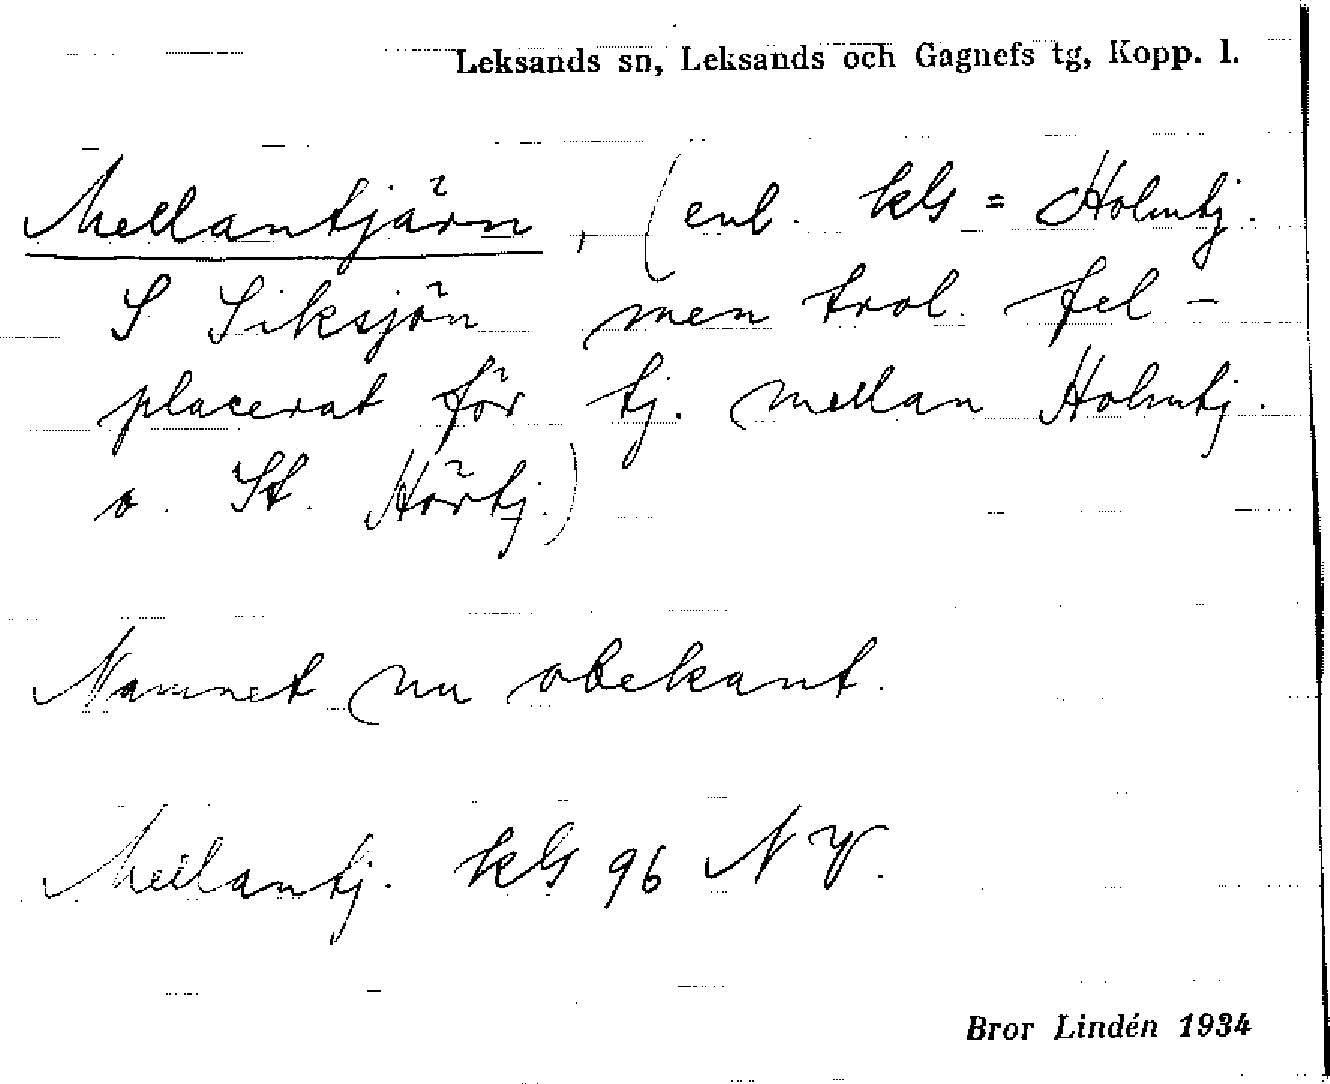 Leksands sn, Leksands och Gagnefs tg, Kopp. l.
Mellantjärn, (enl. kls = Holmtj.
S Siksjön men trol. fel-
placerat för tj. mellan Holmtj.
o. St. Hörtj.)
Namnet nu obekant.
Mellantj. kls 96 NV.
Bror Lindén 1934